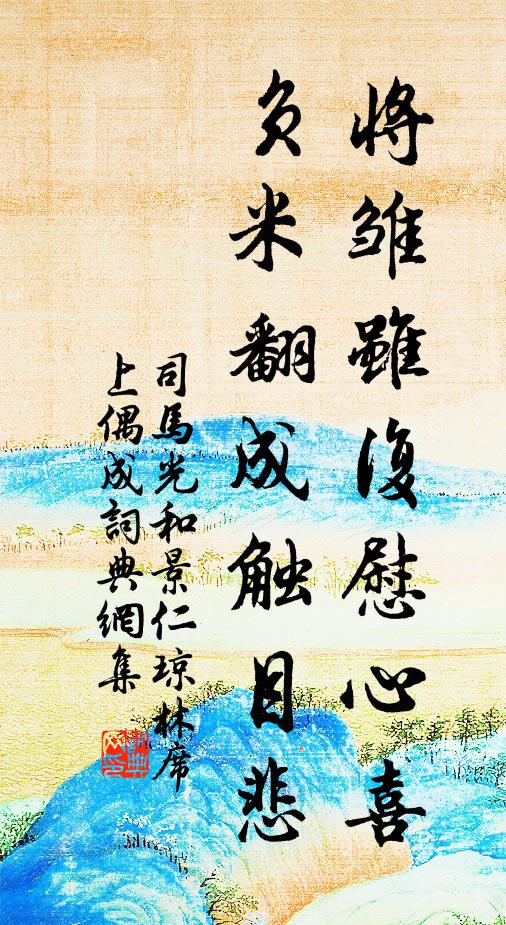 将雏雖復慰心喜
負米翻成触目悲
司馬光和景仁琼林席
上偶成詞典網集